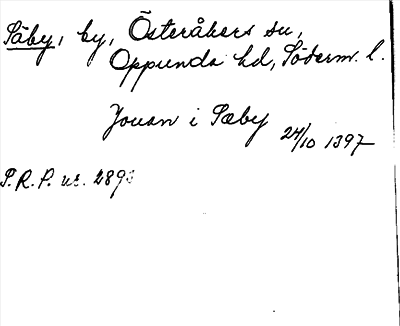 Säby, by, Österåkers sn,
Oppunda hd, Söderm. l.
Jouan i Sæby
24/10 1397
S.R.P. nr. 2893